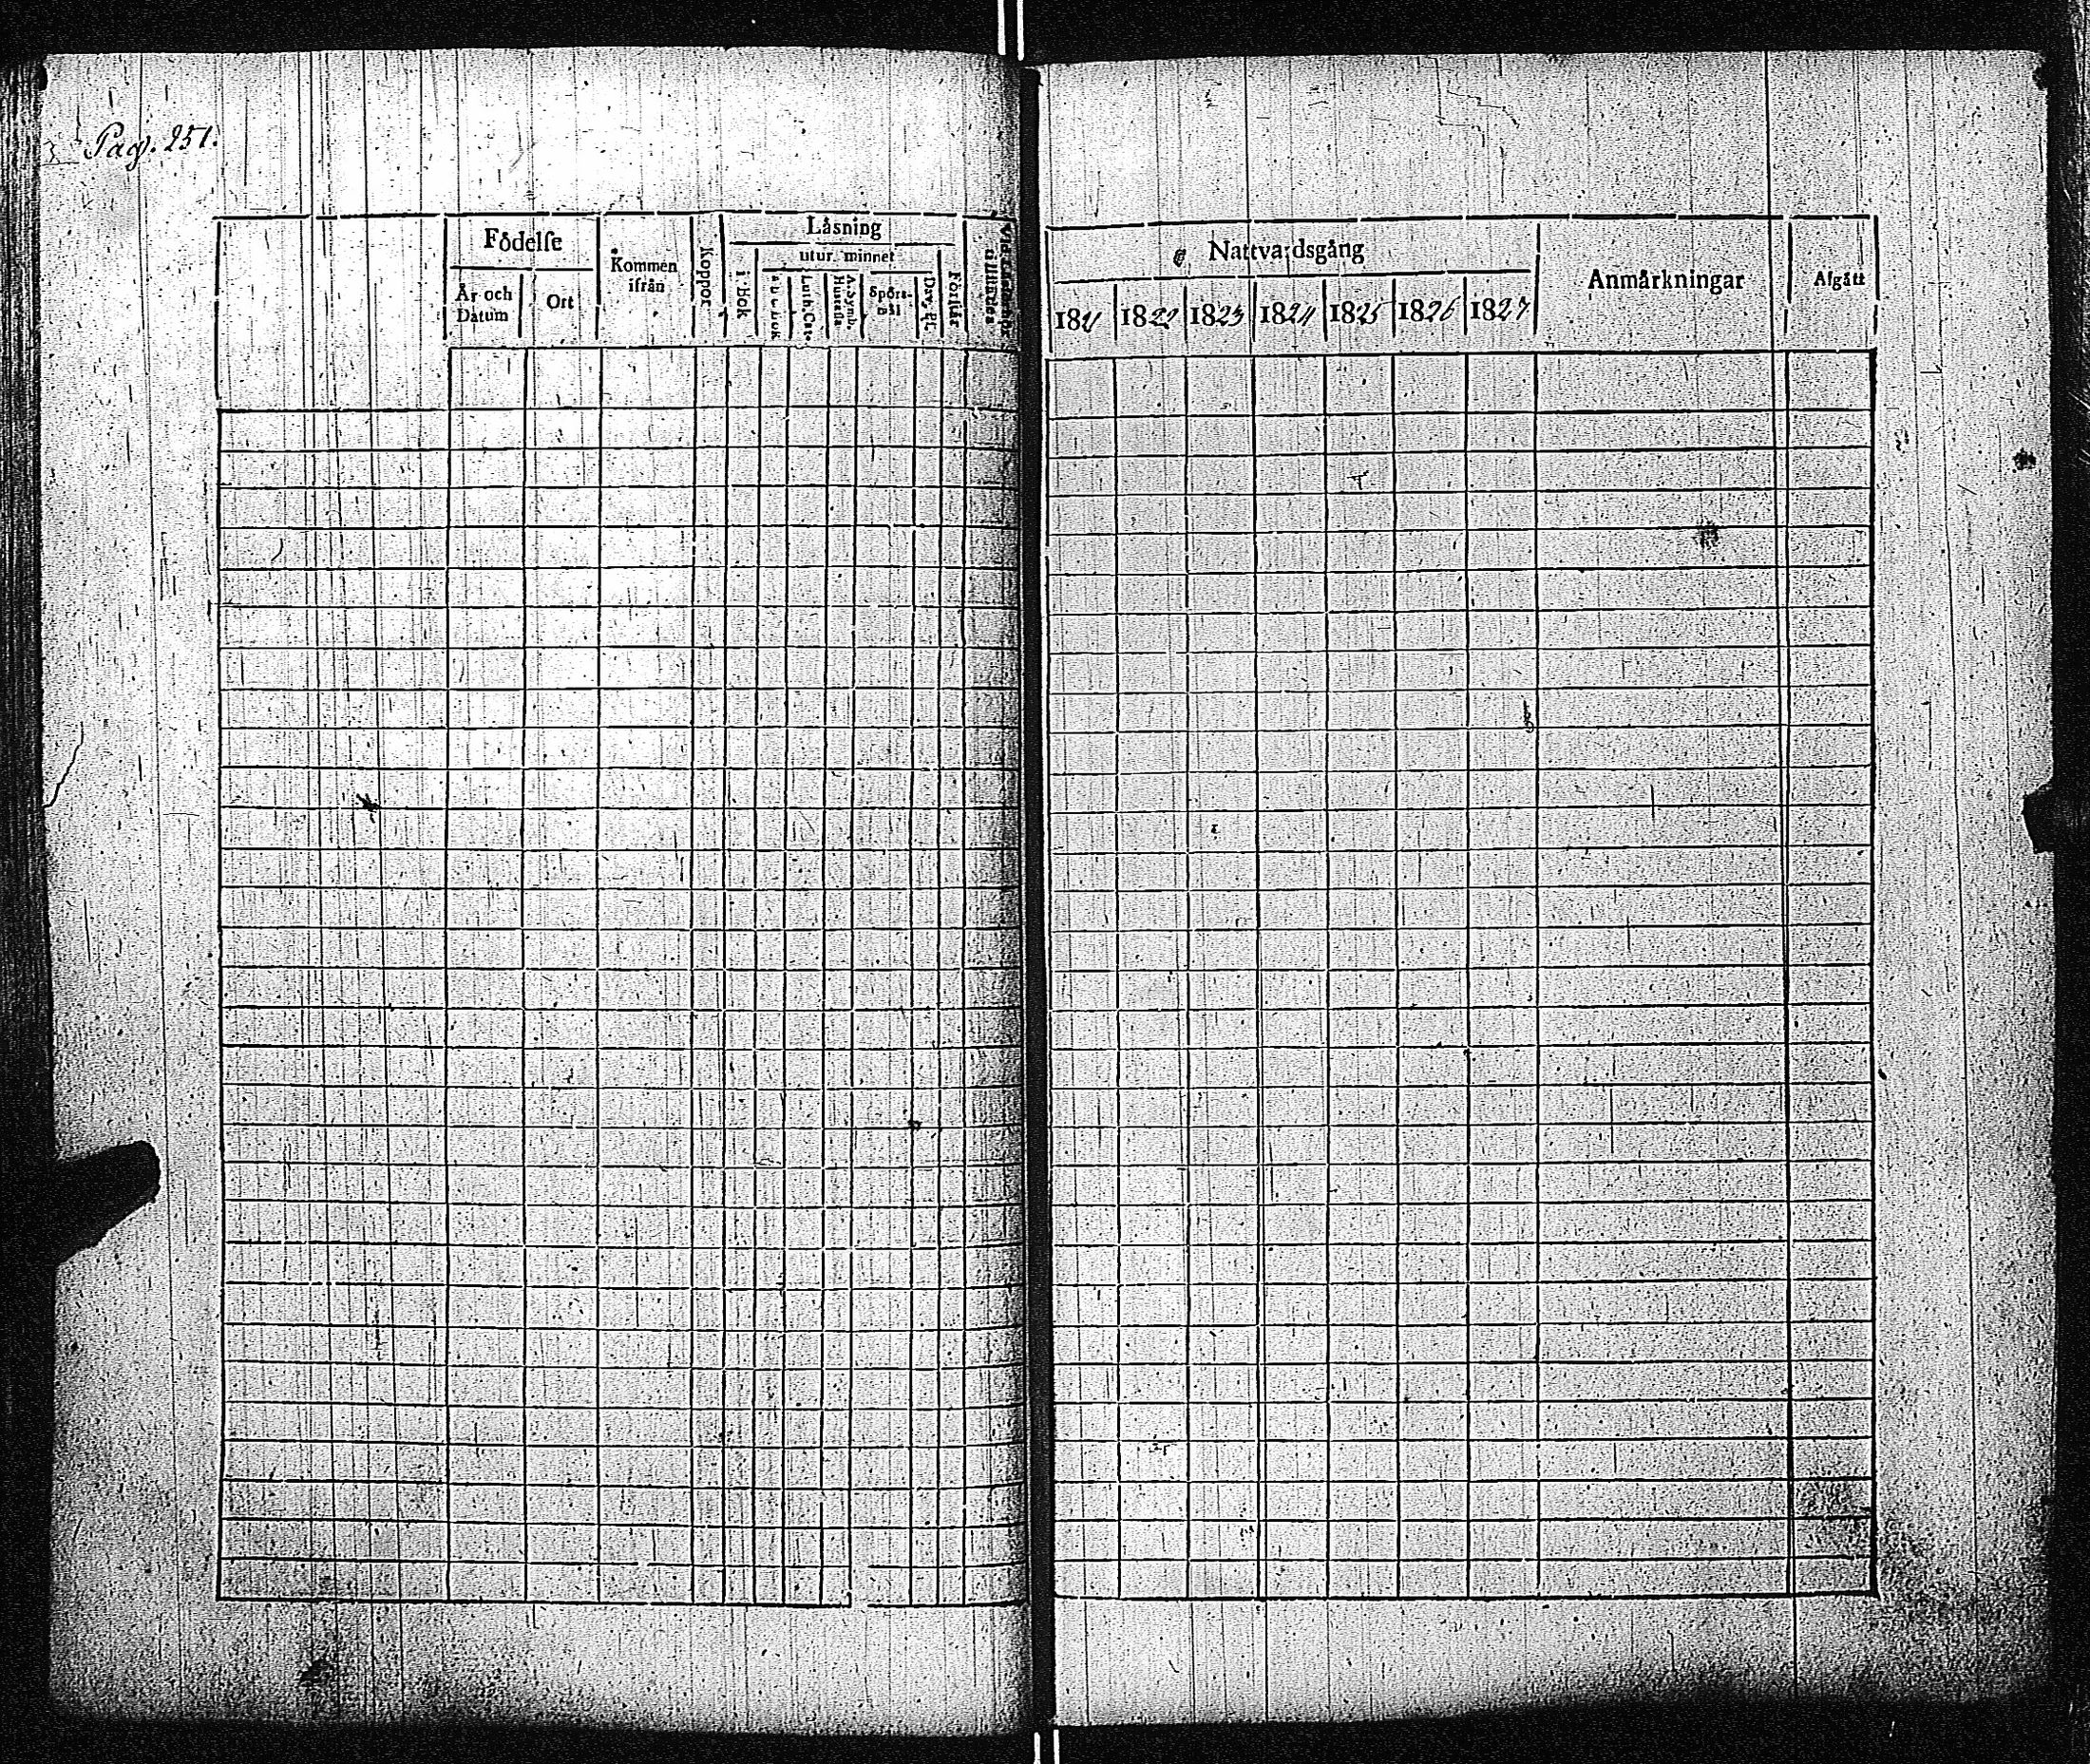 Pag. 251.
Födelse
År och Datum
Ort
Kommen ifrån
Koppor
Läsning
i bok
utur minnet
Luth. Cat.
A. Symb. Hustafla
Spörsmål
Dav. Ps.
Förstår
Nattvardsgång
1821 1822 1823 1824 1825 1826 1827
Anmärkningar
Afgått